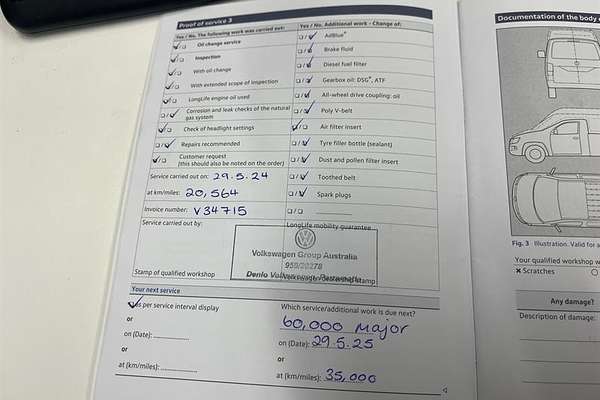 Proof of service 3
Yes / No. The following work was carried out:
Oil change service
Inspection
With oil change
With extended scope of inspection
LongLife engine oil used
Corrosion and leak checks of the natural
gas system
Check of headlight settings
Repairs recommended
Customer request
(this should also be noted on the order)
Service carried out on: 29.5.24
at km/miles: 20,564
Invoice number: V34715
Service carried out by:
Stamp of qualified workshop
Yes / No. Additional work - Change of:
AdBlue®
Brake fluid
Diesel fuel filter
Gearbox oil: DSG®, ATF
All-wheel drive coupling: oil
Poly V-belt
Air filter insert
Tyre filler bottle (sealant)
Dust and pollen filter insert
Toothed belt
Spark plugs
LongLife mobility guarantee
Volkswagen Group Australia
Volkswagen dealership stamp
Your next service
as per service interval display
or
on (Date):
or
at (km/miles):
Which service/additional work is due next?
60,000 Major
on (Date): 29.5.25
or
at (km/miles): 35,000
Documentation of the body
Fig. 3 Illustration. Valid for
Your qualified
Scratches
Any damage?
Description of damage: